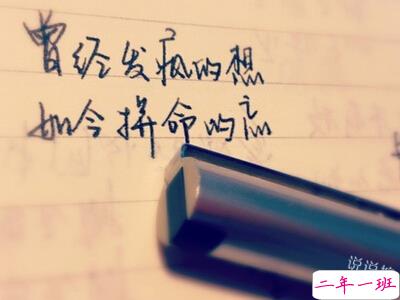 曾经发疯的想
如今拼命的忘
说说
二年一班